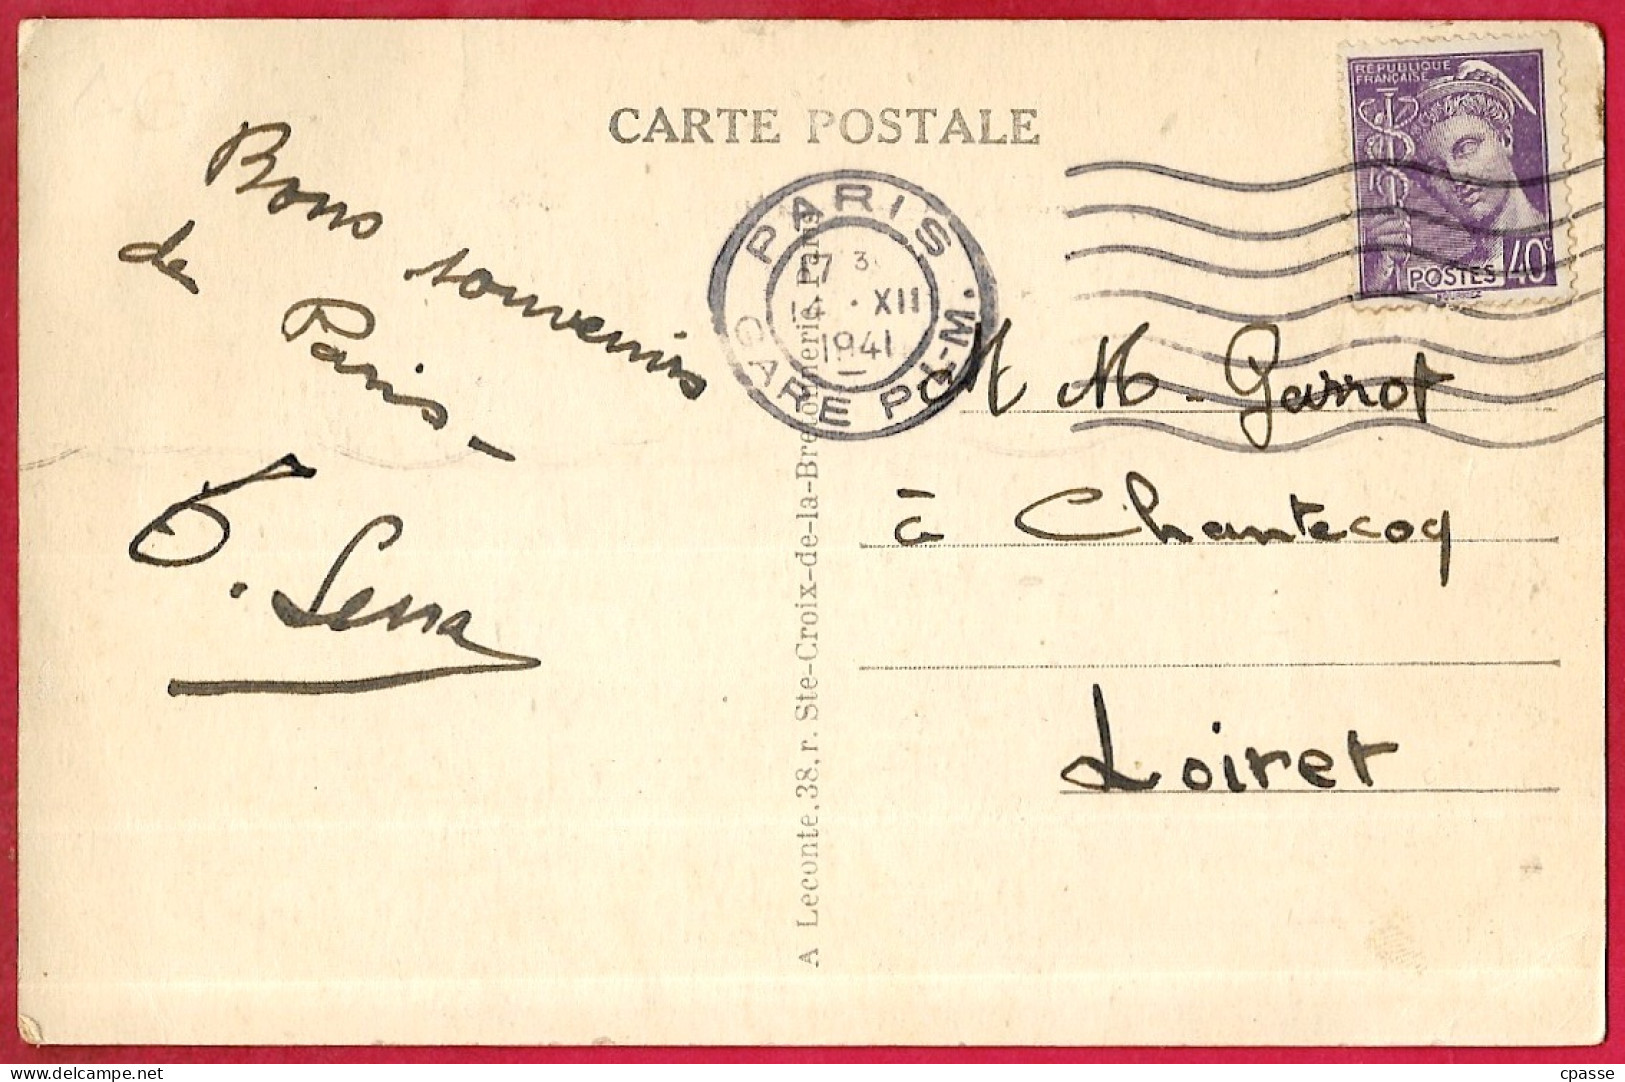 CARTE POSTALE
RÉPUBLIQUE
FRANÇAISE
POSTES 40c
PARIS
17 3
XII
1941
GARE P.L-M.
Bons souvenirs
de Paris -
Serra
M M - Garrot
à Chantecoq
Loiret
A Leconte, 38, r. Ste-Croix-de-la-Bretonnerie, Paris
delcampe.net
cpasse